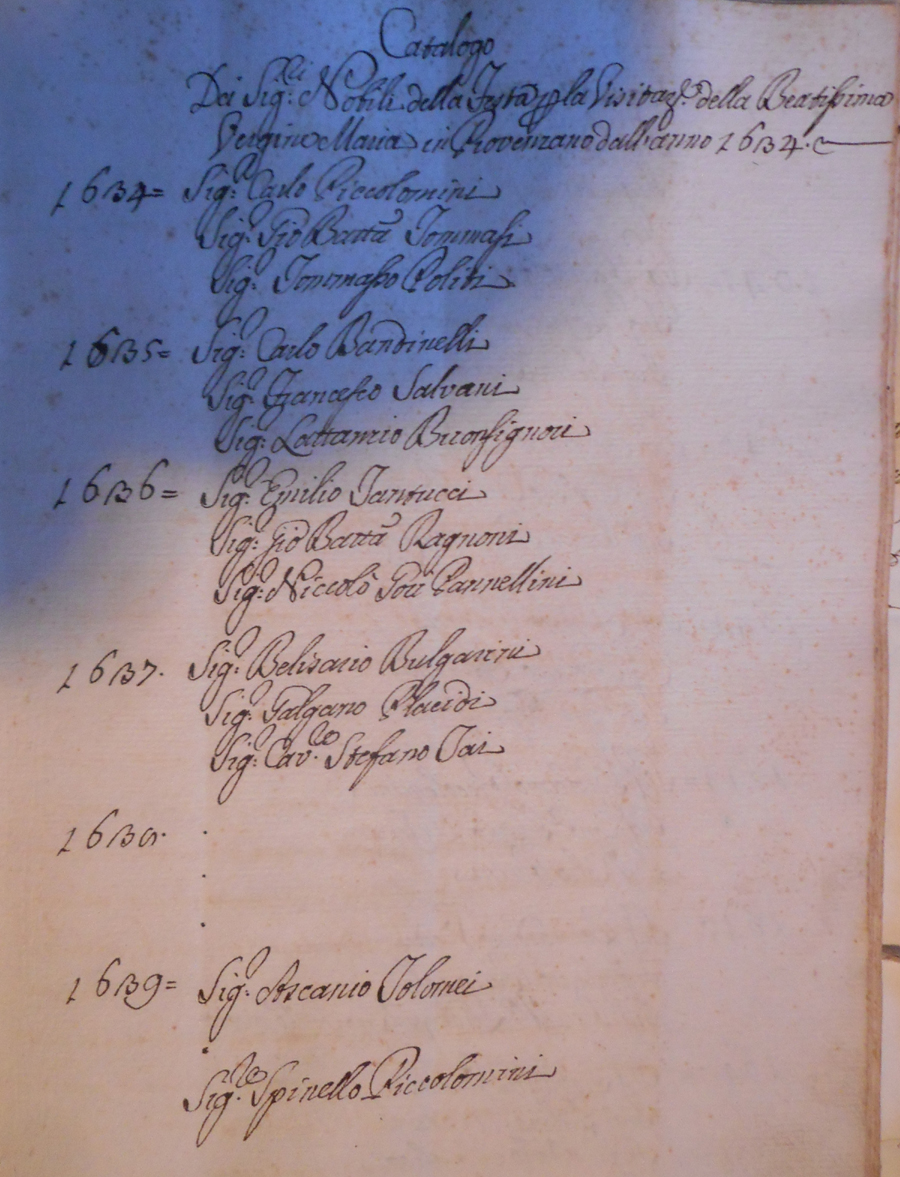 Catalogo
Dei Sig:ri Nobili della Festa p la Visitaz.e della Beatissima
Vergine Maria in Provenzano dall'anno 1634.
1634= Sig:r Carlo Piccolomini
Sig:r Gio Batta Tommasi
Sig:r Tommaso Politi
1635= Sig:r Carlo Bandinelli
Sig:r Francesco Salvani
Sig:r Lattanzio Buonsignori
1636= Sig:r Emilio Tantucci
Sig:r Gio Batta Ragnoni
Sig:r Niccolò Gori Pannellini
1637. Sig:r Belisario Bulgarini
Sig:r Galgano Placidi
Sig:r Cav:re Stefano Tai
1638.
1639= Sig:r Ascanio Tolomei
Sig:re Spinello Piccolomini